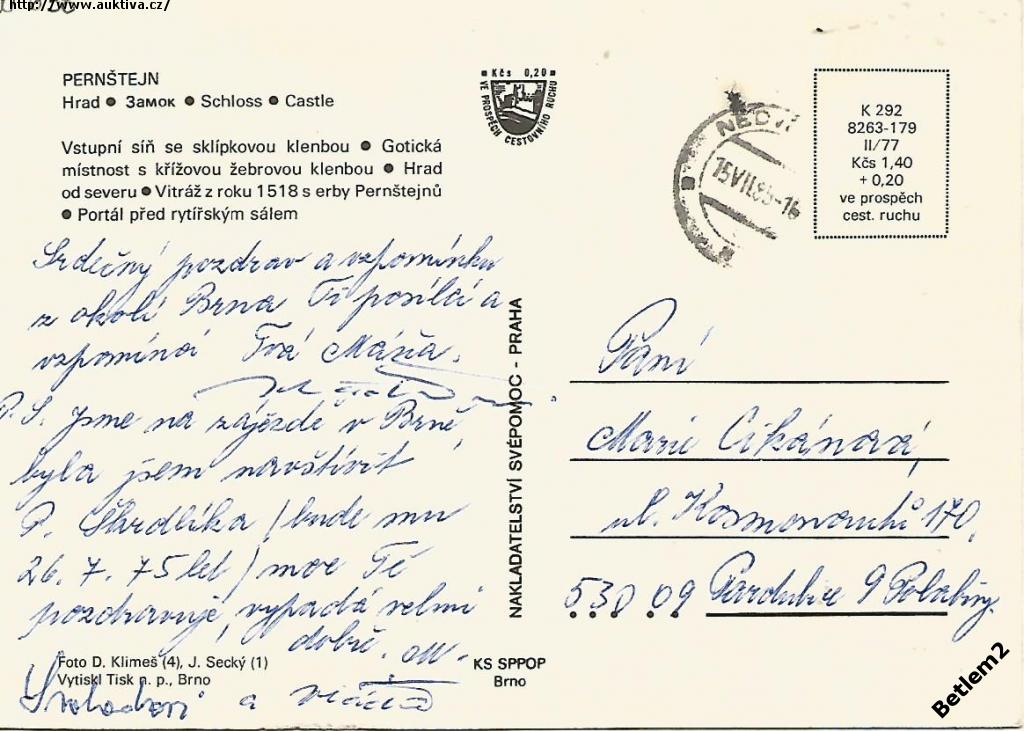 http://www.auktiva.cz/
PERNŠTEJN
Hrad ● Замок ● Schloss ● Castle
Vstupní síň se sklípkovou klenbou ● Gotická
místnost s křížovou žebrovou klenbou ● Hrad
od severu ● Vitráž z roku 1518 s erby Pernštejnů
● Portál před rytířským sálem
Kčs 0,20
VE PROSPĚCH CESTOVNÍHO RUCHU
NEDVĚ
15.VII.85-16
K 292
8263-179
II/77
Kčs 1,40
+ 0,20
ve prospěch
cest. ruchu
Srdečný pozdrav a vzpomínku
z okolí Brna Ti posílá a
vzpomíná Tvá Máňa.
P. S. Jsme na zájezdě v Brně,
byla jsem navštívit
P. Škrdlíka / bude mu
26. 7. 75 let / moc Tě
pozdravuje, vypadá velmi
dobře. M.
a
Foto D. Klimeš (4), J. Secký (1)
Vytiskl Tisk n. p., Brno
NAKLADATELSTVÍ SVÉPOMOC - PRAHA
KS SPPOP
Brno
Paní
Marie Cikánová,
ul. Kosmonautů 170,
530 09 Pardubice 9 Polabiny
Betlem2